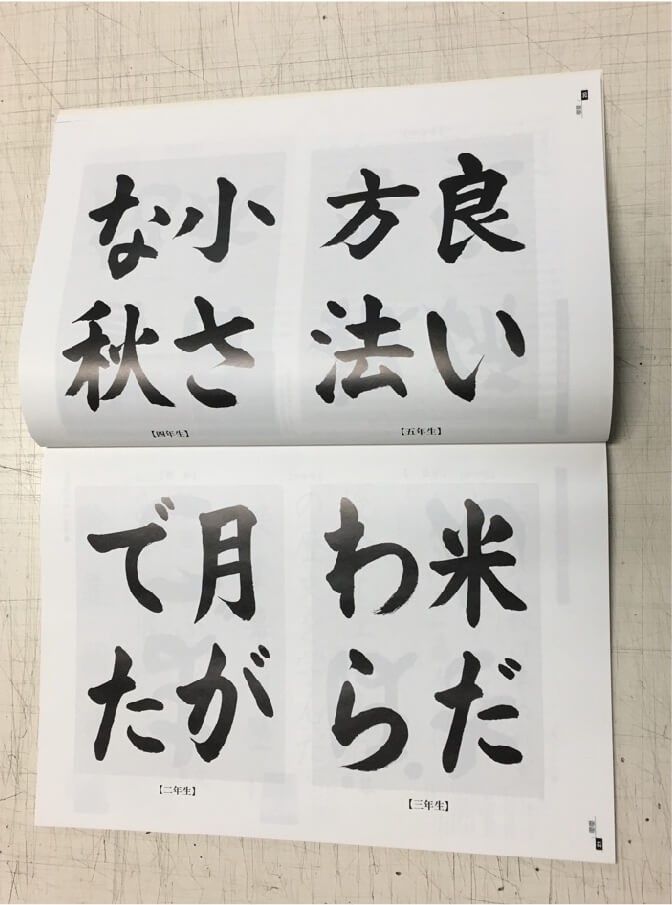 良い
方法
【五年生】
小さ
な秋
【四年生】
米だ
わら
【三年生】
月が
でた
【二年生】